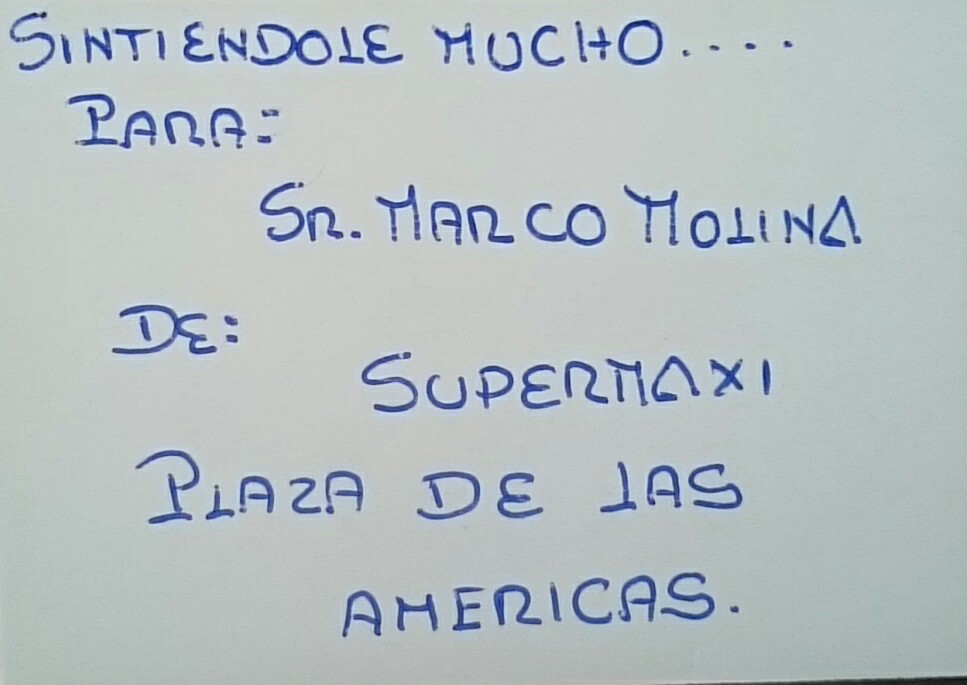 SINTIENDOLE MUCHO....
PARA:
SR. MARCO MOLINA
DE:
SUPERMAXI
PLAZA DE LAS
AMERICAS.